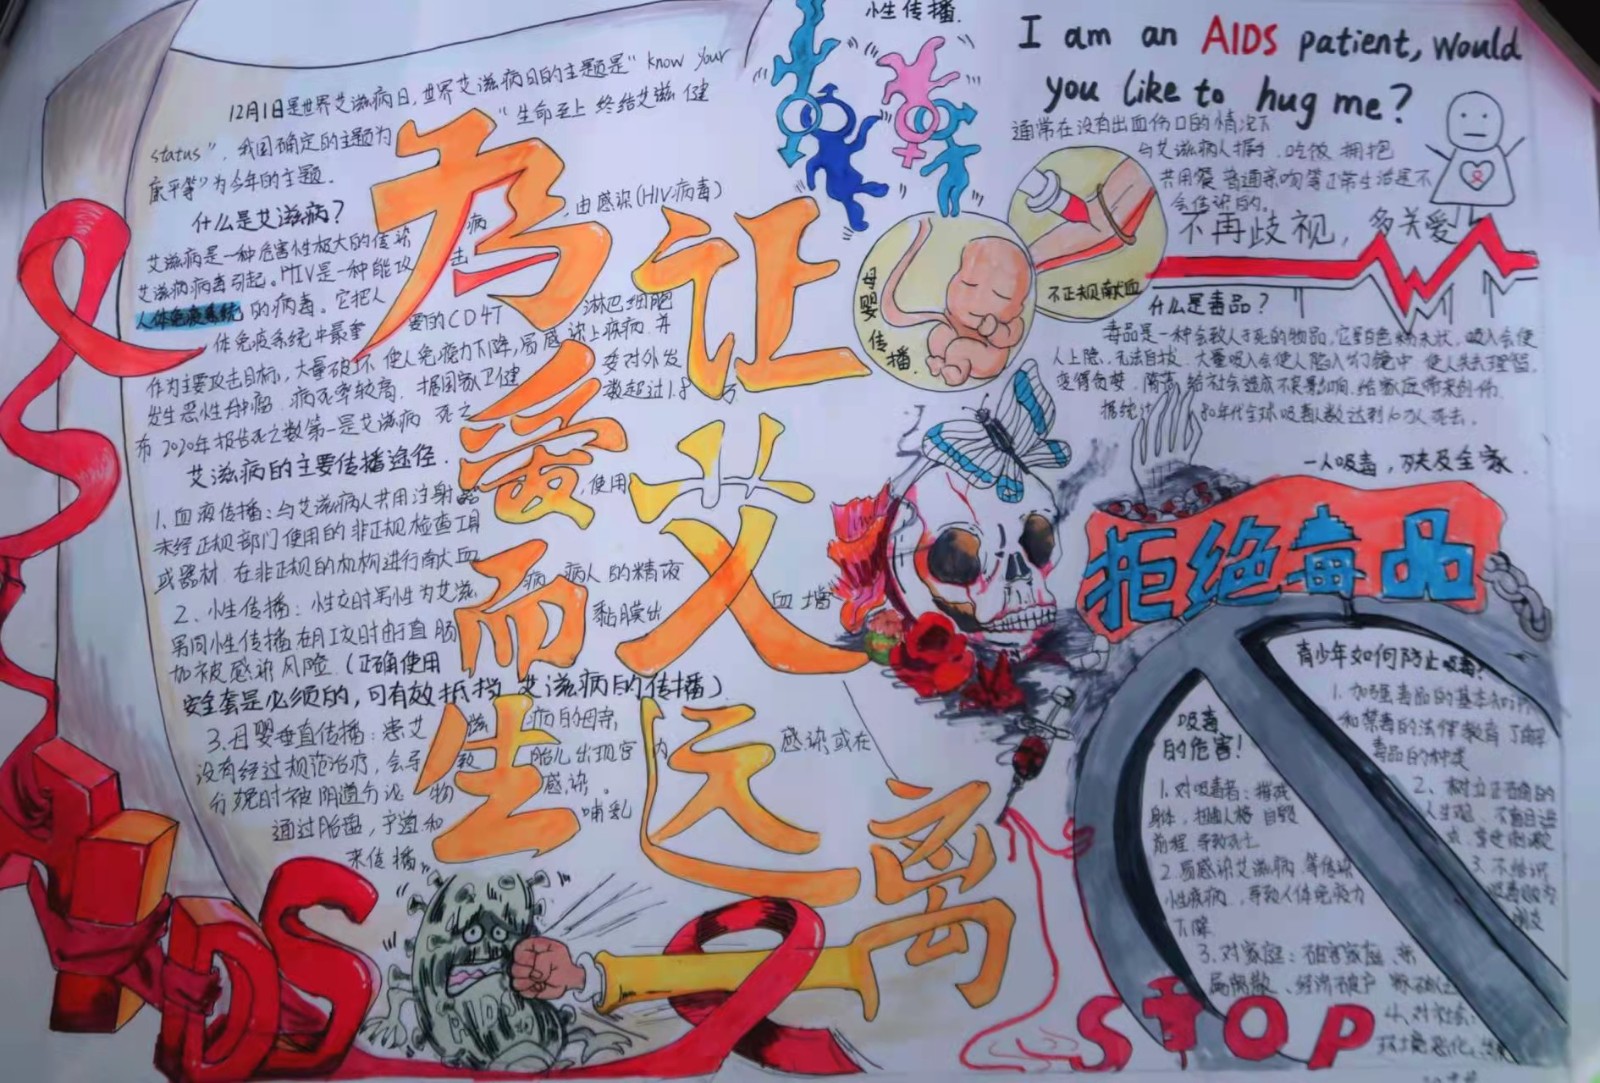 12月1日是世界艾滋病日,世界艾滋病日的主题是"know your
status",我国确定的主题为"生命至上 终结艾滋 健
康平等"为今年的主题.
什么是艾滋病?
艾滋病是一种危害性极大的传染病,由感染(HIV病毒)
艾滋病病毒引起。HIV是一种能攻击
人体免疫系统的病毒。它把人
体免疫系统中最重要的CD4T淋巴细胞
作为主要攻击目标,大量破坏,使人免疫力下降,易感染上疾病,并
发生恶性肿瘤,病死率较高.据国家卫健委对外发
布2020年报告死亡数第一是艾滋病 死亡数超过1.8万
艾滋病的主要传播途径.
1、血液传播:与艾滋病人共用注射器,使用
未经正规部门使用的非正规检查工具
或器材.在非正规的机构进行献血
2、性传播:性交时男性为艾滋病病人的精液
男同性传播在肛交时由于直肠黏膜出血增
加被感染风险.(正确使用
安全套是必须的,可有效抵挡艾滋病的传播)
3、母婴垂直传播:患艾滋病的母亲
没有经过规范治疗,会导致胎儿出现宫内感染或在
分娩时被阴道分泌物感染。
通过胎盘,子宫和哺乳
来传播.
为爱而生
让艾远离
AIDS
性传播.
母婴传播.
不正规献血
I am an AIDS patient, would
you like to hug me?
通常在没有出血伤口的情况下
与艾滋病人握手.吃饭 拥抱
共用餐 普通亲吻等正常生活是不
会传染的。
不再歧视,多关爱
什么是毒品?
毒品是一种会致人于死的物品,它呈白色粉末状,吸入会使
人上瘾,无法自拔.大量吸入会使人陷入幻镜中,使人失去理智,
变得贪婪,给社会造成不良影响,给家庭带来创伤.
80年代全球吸毒人数达到10万人死去.
一人吸毒,殃及全家.
拒绝毒品
吸毒
的危害!
1.对吸毒者:摧残
身体,扭曲人格 自毁
前程,导致死亡
2.易感染艾滋病,等传染
性疾病.导致人体免疫力
下降
3.对家庭:破害家庭,亲
属离散、经济破产
4、对社会:
环境恶化,
青少年如何防止吸毒?
1.加强毒品的基本知识
和禁毒的法律教育 了解
毒品的种类
2、树立正确的
人生观、不盲目追
3、不结识
STOP